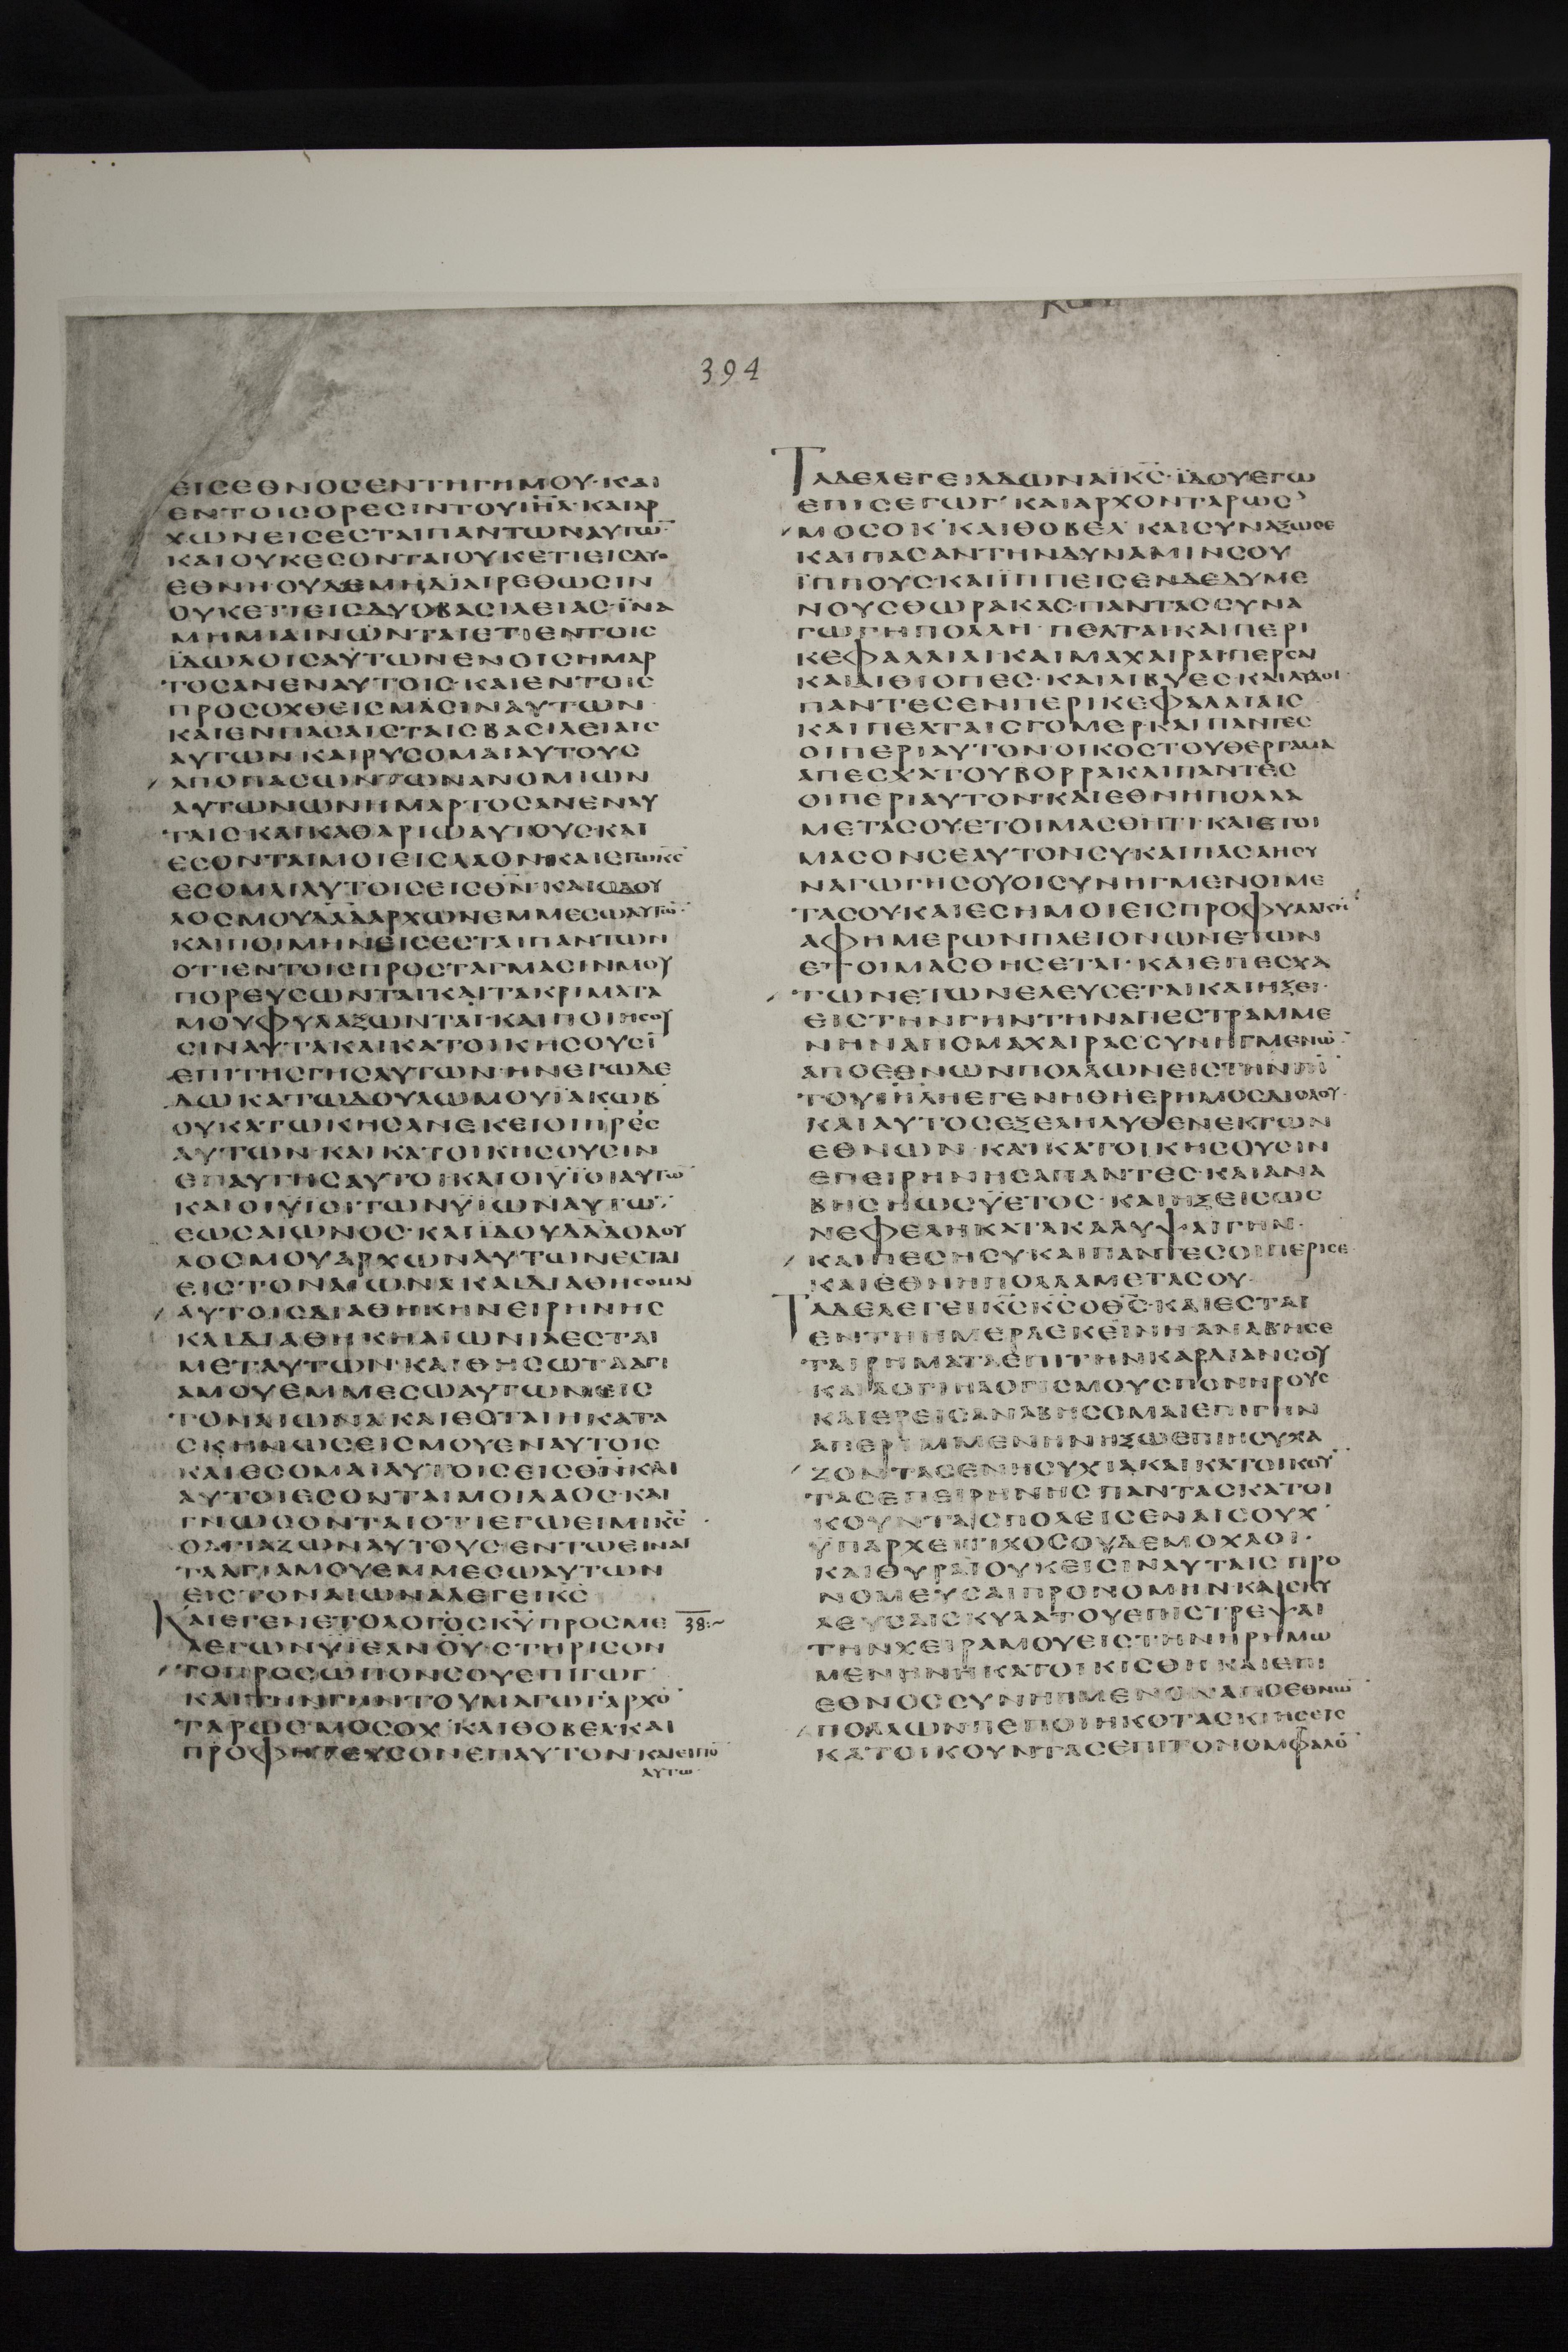 394
ΕΙϹΕΘΝΟϹΕΝΤΗΓΗΜΟΥ·ΚΑΙ
ΕΝΤΟΙϹΟΡΕϹΙΝΤΟΥΙΗΛ·ΚΑΙΑΡ
ΧΩΝΕΙϹΕϹΤΑΙΠΑΝΤΩΝΑΥΤΩ̅
ΚΑΙΟΥΚΕϹΟΝΤΑΙΟΥΚΕΤΙΕΙϹΔΥΟ
ΕΘΝΗ·ΟΥΔΕΜΗΔΙΑΙΡΕΘΩϹΙΝ
ΟΥΚΕΤΙΕΙϹΔΥΟΒΑϹΙΛΕΙΑϹ·ΪΝΑ
ΜΗΜΙΑΙΝΩΝΤΑΙΕΤΙΕΝΤΟΙϹ
ΪΔΩΛΟΙϹΑΥΤΩΝΕΝΟΙϹΗΜΑΡ
ΤΟϹΑΝΕΝΑΥΤΟΙϹ·ΚΑΙΕΝΤΟΙϹ
ΠΡΟϹΟΧΘΕΙϹΜΑϹΙΝΑΥΤΩΝ
ΚΑΙΕΝΠΑϹΑΙϹΤΑΙϹΒΑϹΙΛΕΙΑΙϹ
ΑΥΤΩΝΚΑΙΡΥϹΟΜΑΙΑΥΤΟΥϹ
ΑΠΟΠΑϹΩΝΤΩΝΑΝΟΜΙΩΝ
ΑΥΤΩΝΩΝΗΜΑΡΤΟϹΑΝΕΝΑΥ
ΤΑΙϹ·ΚΑΙΚΑΘΑΡΙΩΑΥΤΟΥϹΚΑΙ
ΕϹΟΝΤΑΙΜΟΙΕΙϹΛΑΟΝ·ΚΑΙΕΓΩΚ̅Ϲ̅
ΕϹΟΜΑΙΑΥΤΟΙϹΕΙϹΘ̅Ν̅·ΚΑΙΟΔΟΥ
ΛΟϹΜΟΥΔΑΔΑΡΧΩΝΕΜΜΕϹΩΑΥΤΩ̅·
ΚΑΙΠΟΙΜΗΝΕΙϹΕϹΤΑΙΠΑΝΤΩΝ
ΟΤΙΕΝΤΟΙϹΠΡΟϹΤΑΓΜΑϹΙΝΜΟΥ
ΠΟΡΕΥϹΩΝΤΑΙ·ΚΑΙΤΑΚΡΙΜΑΤΑ
ΜΟΥΦΥΛΑΞΩΝΤΑΙ·ΚΑΙΠΟΙΗϹΟΥ
ϹΙΝΑΥΤΑΚΑΙΚΑΤΟΙΚΗϹΟΥϹΙ̅
ΕΠΙΤΗϹΓΗϹΑΥΤΩΝ·ΗΝΕΓΩΔΕ
ΔΩΚΑΤΩΔΟΥΛΩΜΟΥΪΑΚΩΒ
ΟΥΚΑΤΩΚΗϹΑΝΕΚΕΙΟΙΠ̅Ρ̅ΕϹ
ΑΥΤΩΝ·ΚΑΙΚΑΤΟΙΚΗϹΟΥϹΙΝ
ΕΠΑΥΤΗϹΑΥΤΟΙΚΑΙΟΙΫΪΟΙΑΥΤΩ̅
ΚΑΙΟΙΫΪΟΙΤΩΝΫΪΩΝΑΥΤΩ̅·
ΕΩϹΑΙΩΝΟϹ·ΚΑΙΪΔΟΥΔΑΔΟΔΟΥ
ΛΟϹΜΟΥΑΡΧΩΝΑΥΤΩΝΕϹΤΑΙ
ΕΙϹΤΟΝΑΙΩΝΑΚΑΙΔΙΑΘΗϹΟΜΑΙ
ΑΥΤΟΙϹΔΙΑΘΗΚΗΝΕΙΡΗΝΗϹ
ΚΑΙΔΙΑΘΗΚΗΑΙΩΝΙΑΕϹΤΑΙ
ΜΕΤΑΥΤΩΝ·ΚΑΙΘΗϹΩΤΑΑΓΙ
ΑΜΟΥΕΜΜΕϹΩΑΥΤΩΝΕΙϹ
ΤΟΝΑΙΩΝΑΚΑΙΕϹΤΑΙΗΚΑΤΑ
ϹΚΗΝΩϹΕΙϹΜΟΥΕΝΑΥΤΟΙϹ
ΚΑΙΕϹΟΜΑΙΑΥΤΟΙϹΕΙϹΘ̅Ν̅ΚΑΙ
ΑΥΤΟΙΕϹΟΝΤΑΙΜΟΙΛΑΟϹ·ΚΑΙ
ΓΝΩϹΟΝΤΑΙΟΤΙΕΓΩΕΙΜΙΚ̅Ϲ̅
ΟΑΓΙΑΖΩΝΑΥΤΟΥϹ·ΕΝΤΩΕΙΝΑΙ
ΤΑΑΓΙΑΜΟΥΕΜΜΕϹΩΑΥΤΩΝ
ΕΙϹΤΟΝΑΙΩΝΑΛΕΓΕΙΚ̅Ϲ̅
ΚΑΙΕΓΕΝΕΤΟΛΟΓΟϹΚ̅Υ̅ΠΡΟϹΜΕ 38:~
ΛΕΓΩΝΫΪΕΑΝ̅Ο̅Υ̅·ϹΤΗΡΙϹΟΝ
ΤΟΠΡΟϹΩΠΟΝϹΟΥΕΠΙΓΩΓ
ΚΑΙΤΗΝΓΗΝΤΟΥΜΑΓΩΓ·ΑΡΧΟ̅
ΤΑΡΩϹ·ΜΟϹΟΧ·ΚΑΙΘΟΒΕΛ·ΚΑΙ
ΠΡΟΦΗΤΕΥϹΟΝΕΠΑΥΤΟΝΚΑΙΕΙΠΟ̅
ΑΥΤΩ
ΤΑΔΕΛΕΓΕΙΑΔΩΝΑΪΚ̅Ϲ̅·ΪΔΟΥΕΓΩ
ΕΠΙϹΕΓΩΓ·ΚΑΙΑΡΧΟΝΤΑΡΩϹ
ΜΟϹΟΚ·ΚΑΙΘΟΒΕΛ·ΚΑΙϹΥΝΑΞΩϹΕ
ΚΑΙΠΑϹΑΝΤΗΝΔΥΝΑΜΙΝϹΟΥ
ΪΠΠΟΥϹ·ΚΑΙΪΠΠΕΙϹΕΝΔΕΔΥΜΕ
ΝΟΥϹΘΩΡΑΚΑϹ·ΠΑΝΤΑϹϹΥΝΑ
ΓΩΓΗΠΟΛΛΗ·ΠΕΛΤΑΙ·ΚΑΙΠΕΡΙ
ΚΕΦΑΛΑΙΑΙ·ΚΑΙΜΑΧΑΙΡΑΙ·ΠΕΡϹΑΙ
ΚΑΙΑΙΘΙΟΠΕϹ·ΚΑΙΛΙΒΥΕϹ·ΚΑΙΛΥΔΟΙ·
ΠΑΝΤΕϹΕΝΠΕΡΙΚΕΦΑΛΑΙΑΙϹ
ΚΑΙΠΕΛΤΑΙϹΓΟΜΕΡ·ΚΑΙΠΑΝΤΕϹ
ΟΙΠΕΡΙΑΥΤΟΝ·ΟΙΚΟϹΤΟΥΘΕΡΓΑΜΑ
ΑΠΕϹΧΑΤΟΥΒΟΡΡΑΚΑΙΠΑΝΤΕϹ
ΟΙΠΕΡΙΑΥΤΟΝ·ΚΑΙΕΘΝΗΠΟΛΛΑ
ΜΕΤΑϹΟΥ·ΕΤΟΙΜΑϹΘΗΤΙ·ΚΑΙΕΤΟΙ
ΜΑϹΟΝϹΕΑΥΤΟΝϹΥ·ΚΑΙΠΑϹΑΗϹΥ
ΝΑΓΩΓΗϹΟΥΟΙϹΥΝΗΓΜΕΝΟΙΜΕ
ΤΑϹΟΥ·ΚΑΙΕϹΗΜΟΙΕΙϹΠΡΟΦΥΛΑΚΗ̅
ΑΦΗΜΕΡΩΝΠΛΕΙΟΝΩΝΕΤΩΝ
ΕΤΟΙΜΑϹΘΗϹΕΤΑΙ·ΚΑΙΕΠΕϹΧΑ
ΤΩΝΕΤΩΝΕΛΕΥϹΕΤΑΙΚΑΙΗΞΕΙ·
ΕΙϹΤΗΝΓΗΝΤΗΝΑΠΕϹΤΡΑΜΜΕ
ΝΗΝΑΠΟΜΑΧΑΙΡΑϹ·ϹΥΝΗΓΜΕΝΩ̅
ΑΠΟΕΘΝΩΝΠΟΛΛΩΝΕΙϹΤΗΝΓΗ̅
ΤΟΥΙΗΛΗΕΓΕΝΗΘΗΕΡΗΜΟϹΔΙΟΛΟΥ·
ΚΑΙΑΥΤΟϹΕΞΕΛΗΛΥΘΕΝΕΚΤΩΝ
ΕΘΝΩΝ·ΚΑΙΚΑΤΟΙΚΗϹΟΥϹΙΝ
ΕΠΕΙΡΗΝΗϹΑΠΑΝΤΕϹ·ΚΑΙΑΝΑ
ΒΗϹΗΩϹΫΕΤΟϹ·ΚΑΙΗΞΕΙϹΩϹ
ΝΕΦΕΛΗΚΑΤΑΚΑΛΥΨΑΙΓΗΝ·
ΚΑΙΠΕϹΗϹΥ·ΚΑΙΠΑΝΤΕϹΟΙΠΕΡΙϹΕ
ΚΑΙΕΘΝΗΠΟΛΛΑΜΕΤΑϹΟΥ·
ΤΑΔΕΛΕΓΕΙΚ̅Ϲ̅Κ̅Ϲ̅ΟΘ̅Ϲ̅·ΚΑΙΕϹΤΑΙ
ΕΝΤΗΗΜΕΡΑΕΚΕΙΝΗ·ΑΝΑΒΗϹΕ
ΤΑΙΡΗΜΑΤΑΕΠΙΤΗΝΚΑΡΔΙΑΝϹΟΥ
ΚΑΙΛΟΓΙΗΛΟΓΙϹΜΟΥϹΠΟΝΗΡΟΥϹ
ΚΑΙΕΡΕΙϹΑΝΑΒΗϹΟΜΑΙΕΠΙΓΗΝ
ΑΠΕΡΙΜΜΕΝΗΝΗΞΩΕΠΙΗϹΥΧΑ
ΖΟΝΤΑϹΕΝΗϹΥΧΙΑΚΑΙΚΑΤΟΙΚΟΥ̅
ΤΑϹΕΠΕΙΡΗΝΗϹΠΑΝΤΑϹΚΑΤΟΙ
ΚΟΥΝΤΑϹΠΟΛΕΙϹΕΝΑΙϹΟΥΧ
ΫΠΑΡΧΕΙΤΙΧΟϹΟΥΔΕΜΟΧΛΟΙ·
ΚΑΙΘΥΡΑΙΟΥΚΕΙϹΙΝΑΥΤΑΙϹΠΡΟ
ΝΟΜΕΥϹΑΙΠΡΟΝΟΜΗΝΚΑΙϹΚΥ
ΛΕΥϹΑΙϹΚΥΛΑΤΟΥΕΠΙϹΤΡΕΨΑΙ
ΤΗΝΧΕΙΡΑΜΟΥΕΙϹΤΗΝΗΡΗΜΩ
ΜΕΝΗΝΗΚΑΤΟΙΚΙϹΘΗ·ΚΑΙΕΠΙ
ΕΘΝΟϹϹΥΝΗΓΜΕΝΟΝΑΠΟΕΘΝΩ̅
ΠΟΛΛΩΝΠΕΠΟΙΗΚΟΤΑϹΚΤΗϹΕΙϹ
ΚΑΤΟΙΚΟΥΝΤΑϹΕΠΙΤΟΝΟΜΦΑΛΟ̅